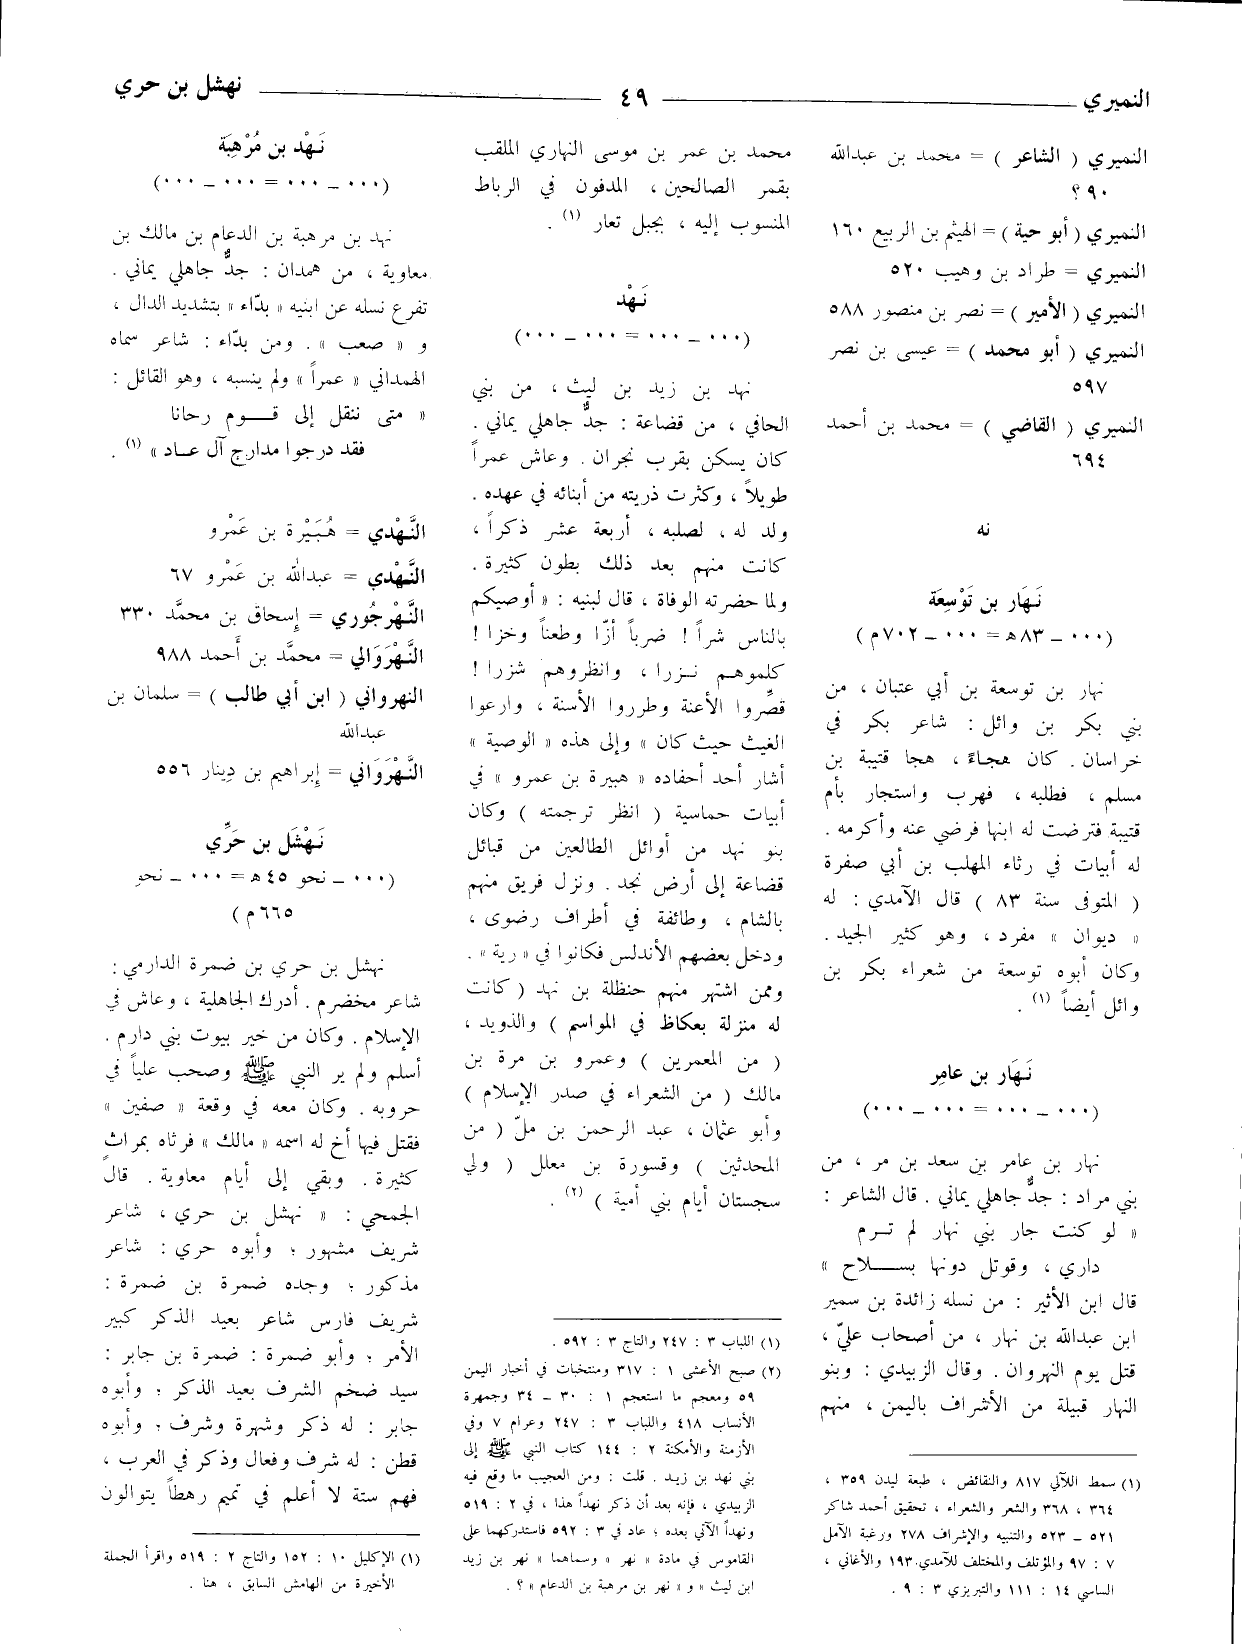 النميري ـــــ ٤٩ ـــــ نهشل بن حري
النميري ( الشاعر ) = محمد بن عبدالله
٩٠ ؟
النميري ( أبو حية ) = الهيثم بن الربيع ١٦٠
النميري = طراد بن وهيب ٥٢٠
النميري ( الأمير ) = نصر بن منصور ٥٨٨
النميري ( أبو محمد ) = عيسى بن نصر
٥٩٧
النميري ( القاضي ) = محمد بن أحمد
٦٩٤
نه
نَهَار بن تَوْسِعَة
(٠٠٠ ـ ٨٣ ه‍ = ٠٠٠ ـ ٧٠٢ م)
نهار بن توسعة بن أبي عتبان ، من
بني بكر بن وائل : شاعر بكر في
خراسان . كان هجاءً ، هجا قتيبة بن
مسلم ، فطلبه ، فهرب واستجار بأم
قتيبة فترضت له ابنها فرضي عنه وأكرمه .
له أبيات في رثاء المهلب بن أبي صفرة
( المتوفى سنة ٨٣ ) قال الآمدي : له
« ديوان » مفرد ، وهو كثير الجيد .
وكان أبوه توسعة من شعراء بكر بن
وائل أيضاً (١) .
نَهَار بن عامِر
(٠٠٠ ـ ٠٠٠ = ٠٠٠ ـ ٠٠٠)
نهار بن عامر بن سعد بن مر ، من
بني مراد : جدٌّ جاهلي يماني . قال الشاعر :
« لو كنت جار بني نهار لم تـرم
داري ، وقوتل دونها بســـلاح »
قال ابن الأثير : من نسله زائدة بن سمير
ابن عبدالله بن نهار ، من أصحاب عليّ ،
قتل يوم النهروان . وقال الزبيدي : وبنو
النهار قبيلة من الأشراف باليمن ، منهم
(١) سمط اللآلي ٨١٧ والنقائض ، طبعة ليدن ٣٥٩ ،
٣٦٤ ، ٣٦٨ والشعر والشعراء ، تحقيق أحمد شاكر
٥٢١ ـ ٥٢٣ والتنبيه والإشراف ٢٧٨ ورغبة الآمل
٧ : ٩٧ والمؤتلف والمختلف للآمدي ١٩٣ والأغاني ،
الساسي ١٤ : ١١١ والتبريزي ٣ : ٩ .
محمد بن عمر بن موسى النهاري الملقب
بقمر الصالحين ، المدفون في الرباط
المنسوب إليه ، بجبل تعار (١) .
نَهْد
(٠٠٠ ـ ٠٠٠ = ٠٠٠ ـ ٠٠٠)
نهد بن زيد بن ليث ، من بني
الحافي ، من قضاعة : جدٌّ جاهلي يماني .
كان يسكن بقرب نجران . وعاش عمراً
طويلاً ، وكثرت ذريته من أبنائه في عهده .
ولد له ، لصلبه ، أربعة عشر ذكراً ،
كانت منهم بعد ذلك بطون كثيرة .
ولما حضرته الوفاة ، قال لبنيه : « أوصيكم
بالناس شراً ! ضرباً أزّا وطعناً وخزا !
كلموهـم نـزرا ، وانظروهم شزرا !
قصِّروا الأعنة وطرروا الأسنة ، وارعوا
الغيث حيث كان » وإلى هذه « الوصية »
أشار أحد أحفاده « هبيرة بن عمرو » في
أبيات حماسية ( انظر ترجمته ) وكان
بنو نهد من أوائل الطالعين من قبائل
قضاعة إلى أرض نجد . ونزل فريق منهم
بالشام ، وطائفة في أطراف رضوى ،
ودخل بعضهم الأندلس فكانوا في « رية » .
وممن اشتهر منهم حنظلة بن نهد ( كانت
له منزلة بعكاظ في المواسم ) والذويد ،
( من المعمرين ) وعمرو بن مرة بن
مالك ( من الشعراء في صدر الإسلام )
وأبو عثمان ، عبد الرحمن بن ملّ ( من
المحدثين ) وقسورة بن معلل ( ولي
سجستان أيام بني أمية ) (٢) .
(١) اللباب ٣ : ٢٤٧ والتاج ٣ : ٥٩٢ .
(٢) صبح الأعشى ١ : ٣١٧ ومنتخبات في أخبار اليمن
٥٩ ومعجم ما استعجم ١ : ٣٠ ـ ٣٤ وجمهرة
الأنساب ٤١٨ واللباب ٣ : ٢٤٧ وعرام ٧ وفي
الأزمنة والأمكنة ٢ : ١٤٤ كتاب النبي ﷺ إلى
بني نهد بن زيد . قلت : ومن العجيب ما وقع فيه
الزبيدي ، فإنه بعد أن ذكر نهداً هذا ، في ٢ : ٥١٩
ونهداً الآتي بعده ؛ عاد في ٣ : ٥٩٢ فاستدركهما على
القاموس في مادة « نهر » وسماهما « نهر بن زيد
ابن ليث » و « نهر بن مرهبة بن الدعام » ؟ .
نَهْد بن مُرْهِبَة
(٠٠٠ ـ ٠٠٠ = ٠٠٠ ـ ٠٠٠)
نهد بن مرهبة بن الدعام بن مالك بن
معاوية ، من همدان : جدٌّ جاهلي يماني .
تفرع نسله عن ابنيه « بدّاء » بتشديد الدال ،
و « صعب » . ومن بدّاء : شاعر سماه
الهمداني « عمراً » ولم ينسبه ، وهو القائل :
« متى ننقل إلى قـــوم رحانا
فقد درجوا مدارج آل عـاد » (١) .
النَّهْدي = هُبَيْرة بن عَمْرو
النَّهْدي = عبدالله بن عَمْرو ٦٧
النَّهْرجُوري = إسحاق بن محمَّد ٣٣٠
النَّهْرَوَالي = محمَّد بن أحمد ٩٨٨
النهرواني ( ابن أبي طالب ) = سلمان بن
عبدالله
النَّهْرَوَاني = إبراهيم بن دِينار ٥٥٦
نَهْشَل بن حَرِّي
(٠٠٠ ـ نحو ٤٥ ه‍ = ٠٠٠ ـ نحو
٦٦٥ م )
نهشل بن حري بن ضمرة الدارمي :
شاعر مخضرم . أدرك الجاهلية ، وعاش في
الإسلام . وكان من خير بيوت بني دارم .
أسلم ولم ير النبي ﷺ وصحب علياً في
حروبه . وكان معه في وقعة « صفين »
فقتل فيها أخ له اسمه « مالك » فرثاه بمراثٍ
كثيرة . وبقي إلى أيام معاوية . قال
الجمحي : « نهشل بن حري ، شاعر
شريف مشهور ؛ وأبوه حري : شاعر
مذكور ؛ وجده ضمرة بن ضمرة :
شريف فارس شاعر بعيد الذكر كبير
الأمر ؛ وأبو ضمرة : ضمرة بن جابر :
سيد ضخم الشرف بعيد الذكر ؛ وأبوه
جابر : له ذكر وشهرة وشرف ؛ وأبوه
قطن : له شرف وفعال وذكر في العرب ،
فهم ستة لا أعلم في تميم رهطاً يتوالون
(١) الإكليل ١٠ : ١٥٢ والتاج ٢ : ٥١٩ واقرأ الجملة
الأخيرة من الهامش السابق ، هنا .